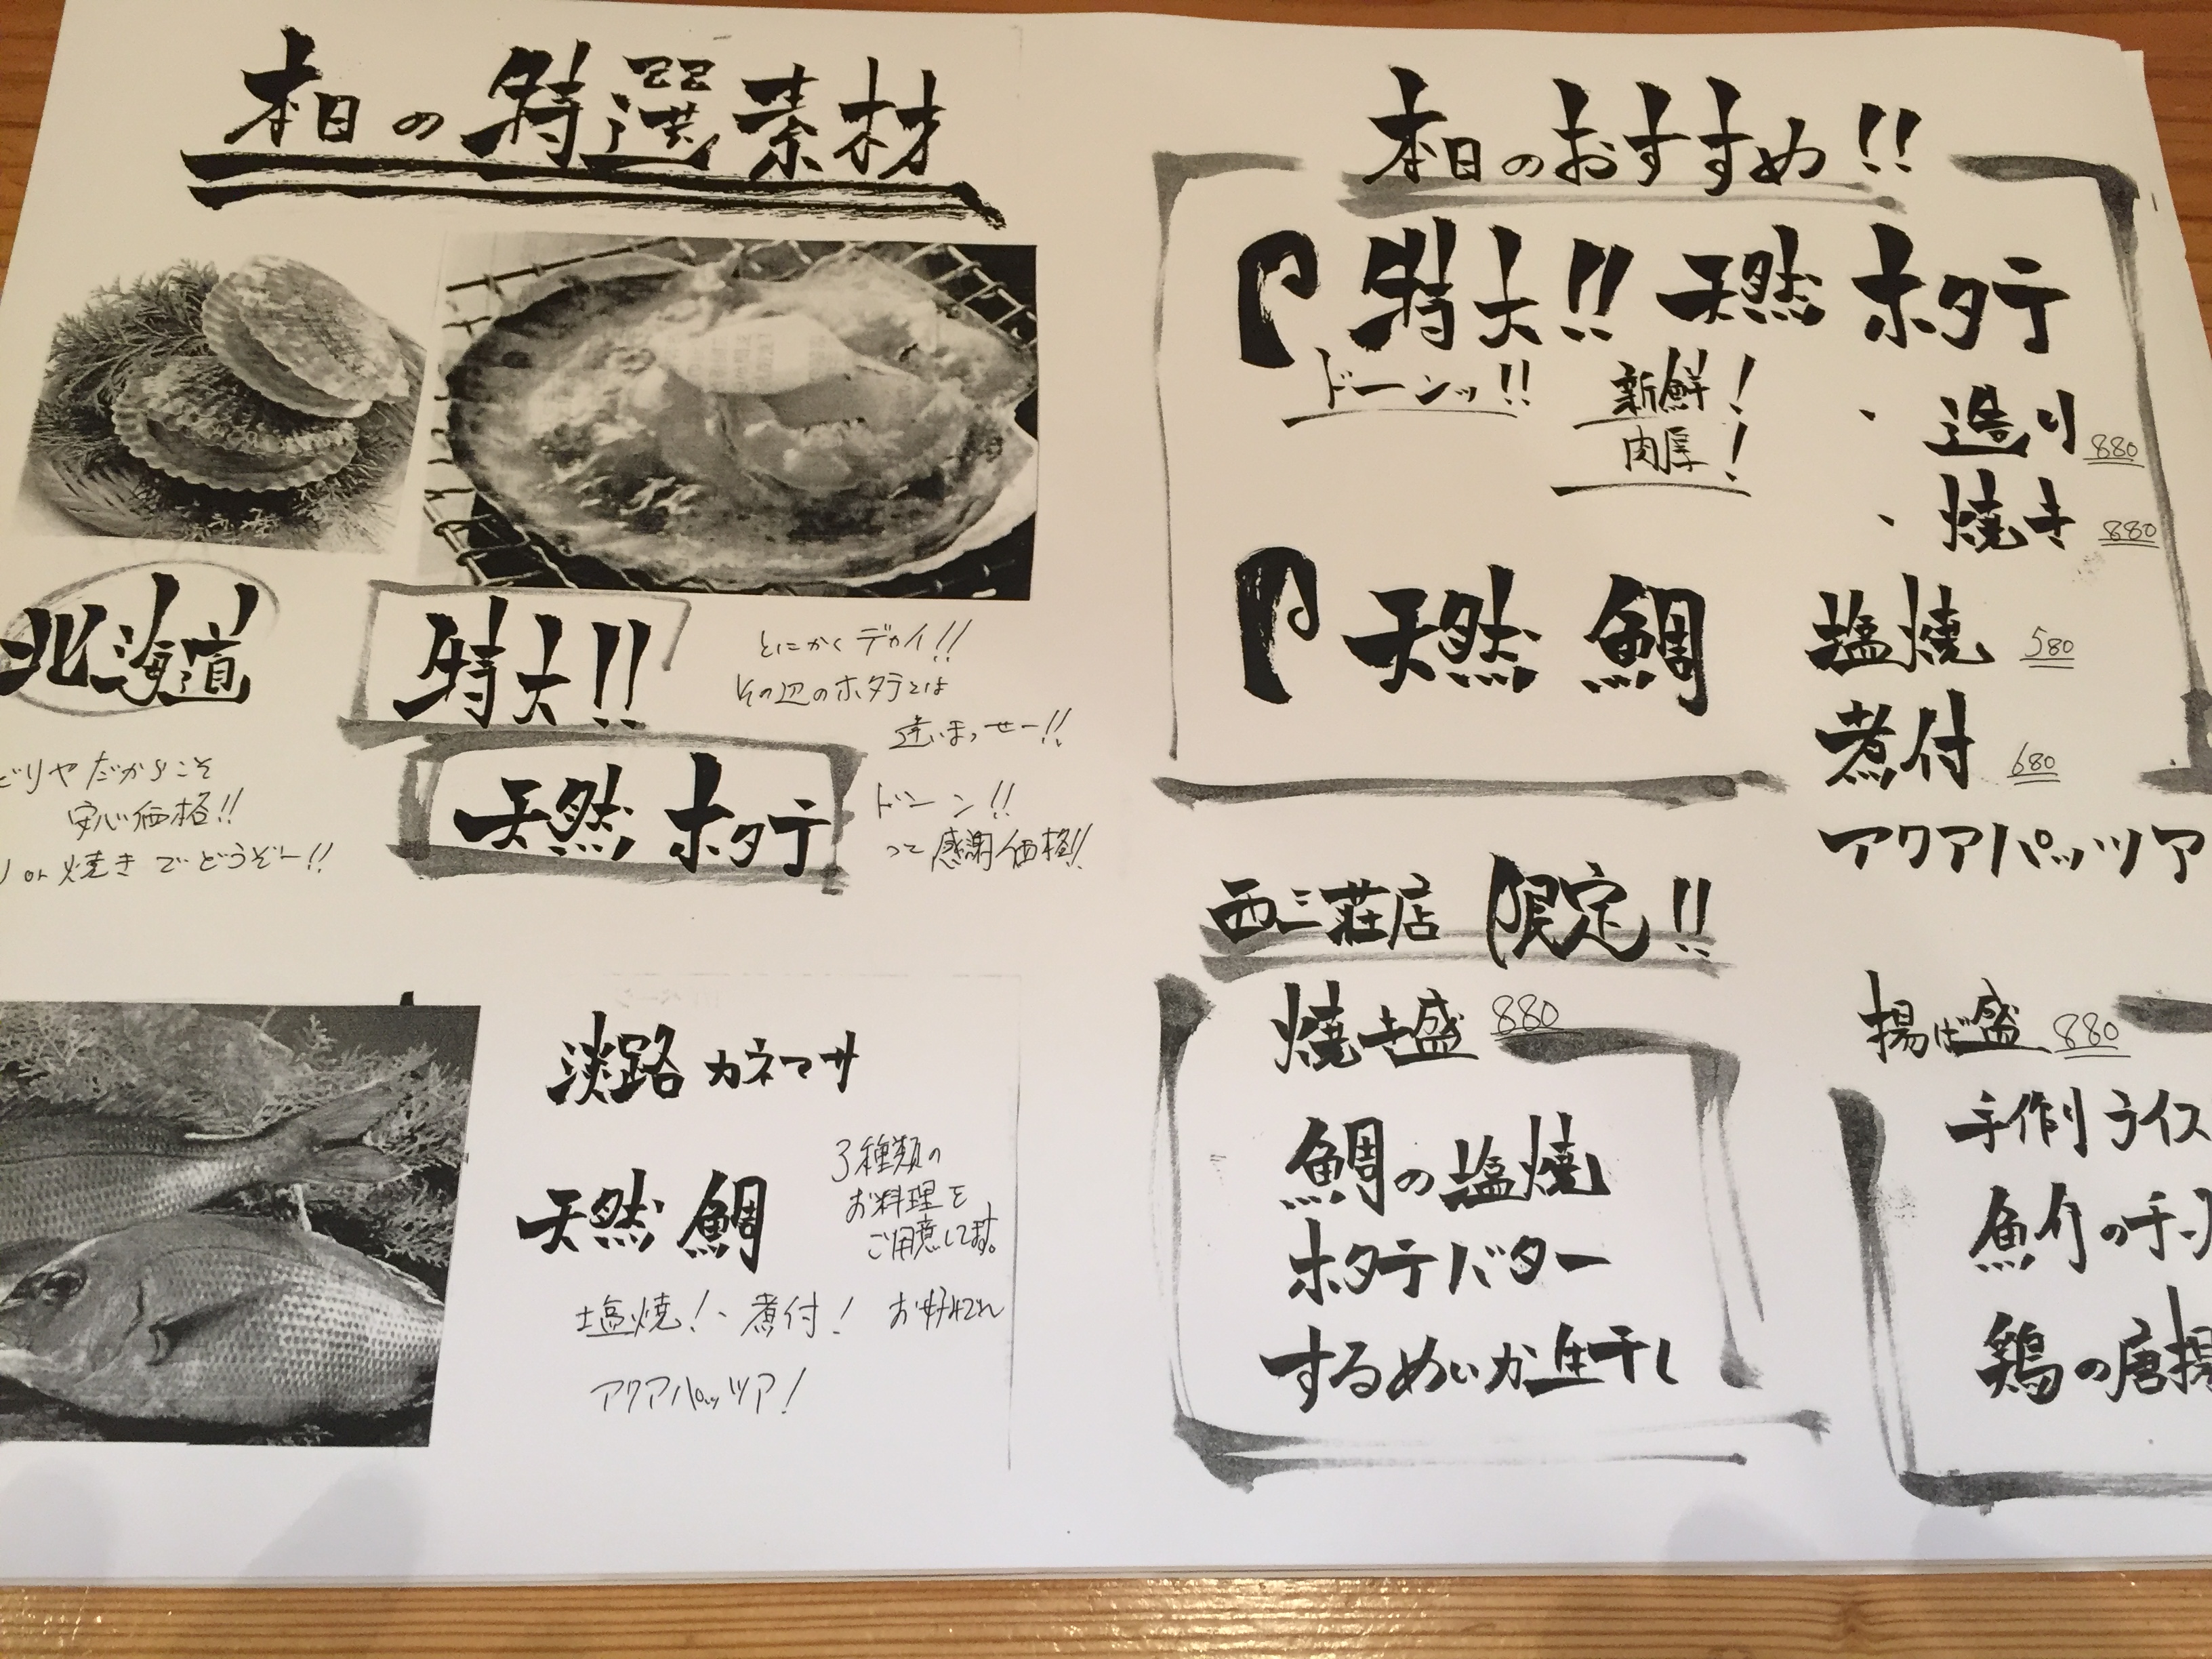 本日の特選素材
北海道
特大!!
天然ホタテ
とにかくデカイ!!
その辺のホタテとは
違いまっせー!!
ドーン!!
って感謝価格!!
どりやだからこそ
安心価格!!
or焼きでどうぞー!!
淡路カネマサ
天然鯛
3種類の
お料理を
ご用意してます。
塩焼!、煮付! お好みで
アクアパッツア!
本日のおすすめ!!
特大!! 天然ホタテ
ドーンッ!!
新鮮!
肉厚!
・造り 880
・焼き 880
天然鯛
塩焼 580
煮付 680
アクアパッツア
西三荘店 限定!!
焼き盛 880
鯛の塩焼
ホタテバター
するめいか生干し
揚げ盛 880
手作りライス
魚介のチ
鶏の唐揚